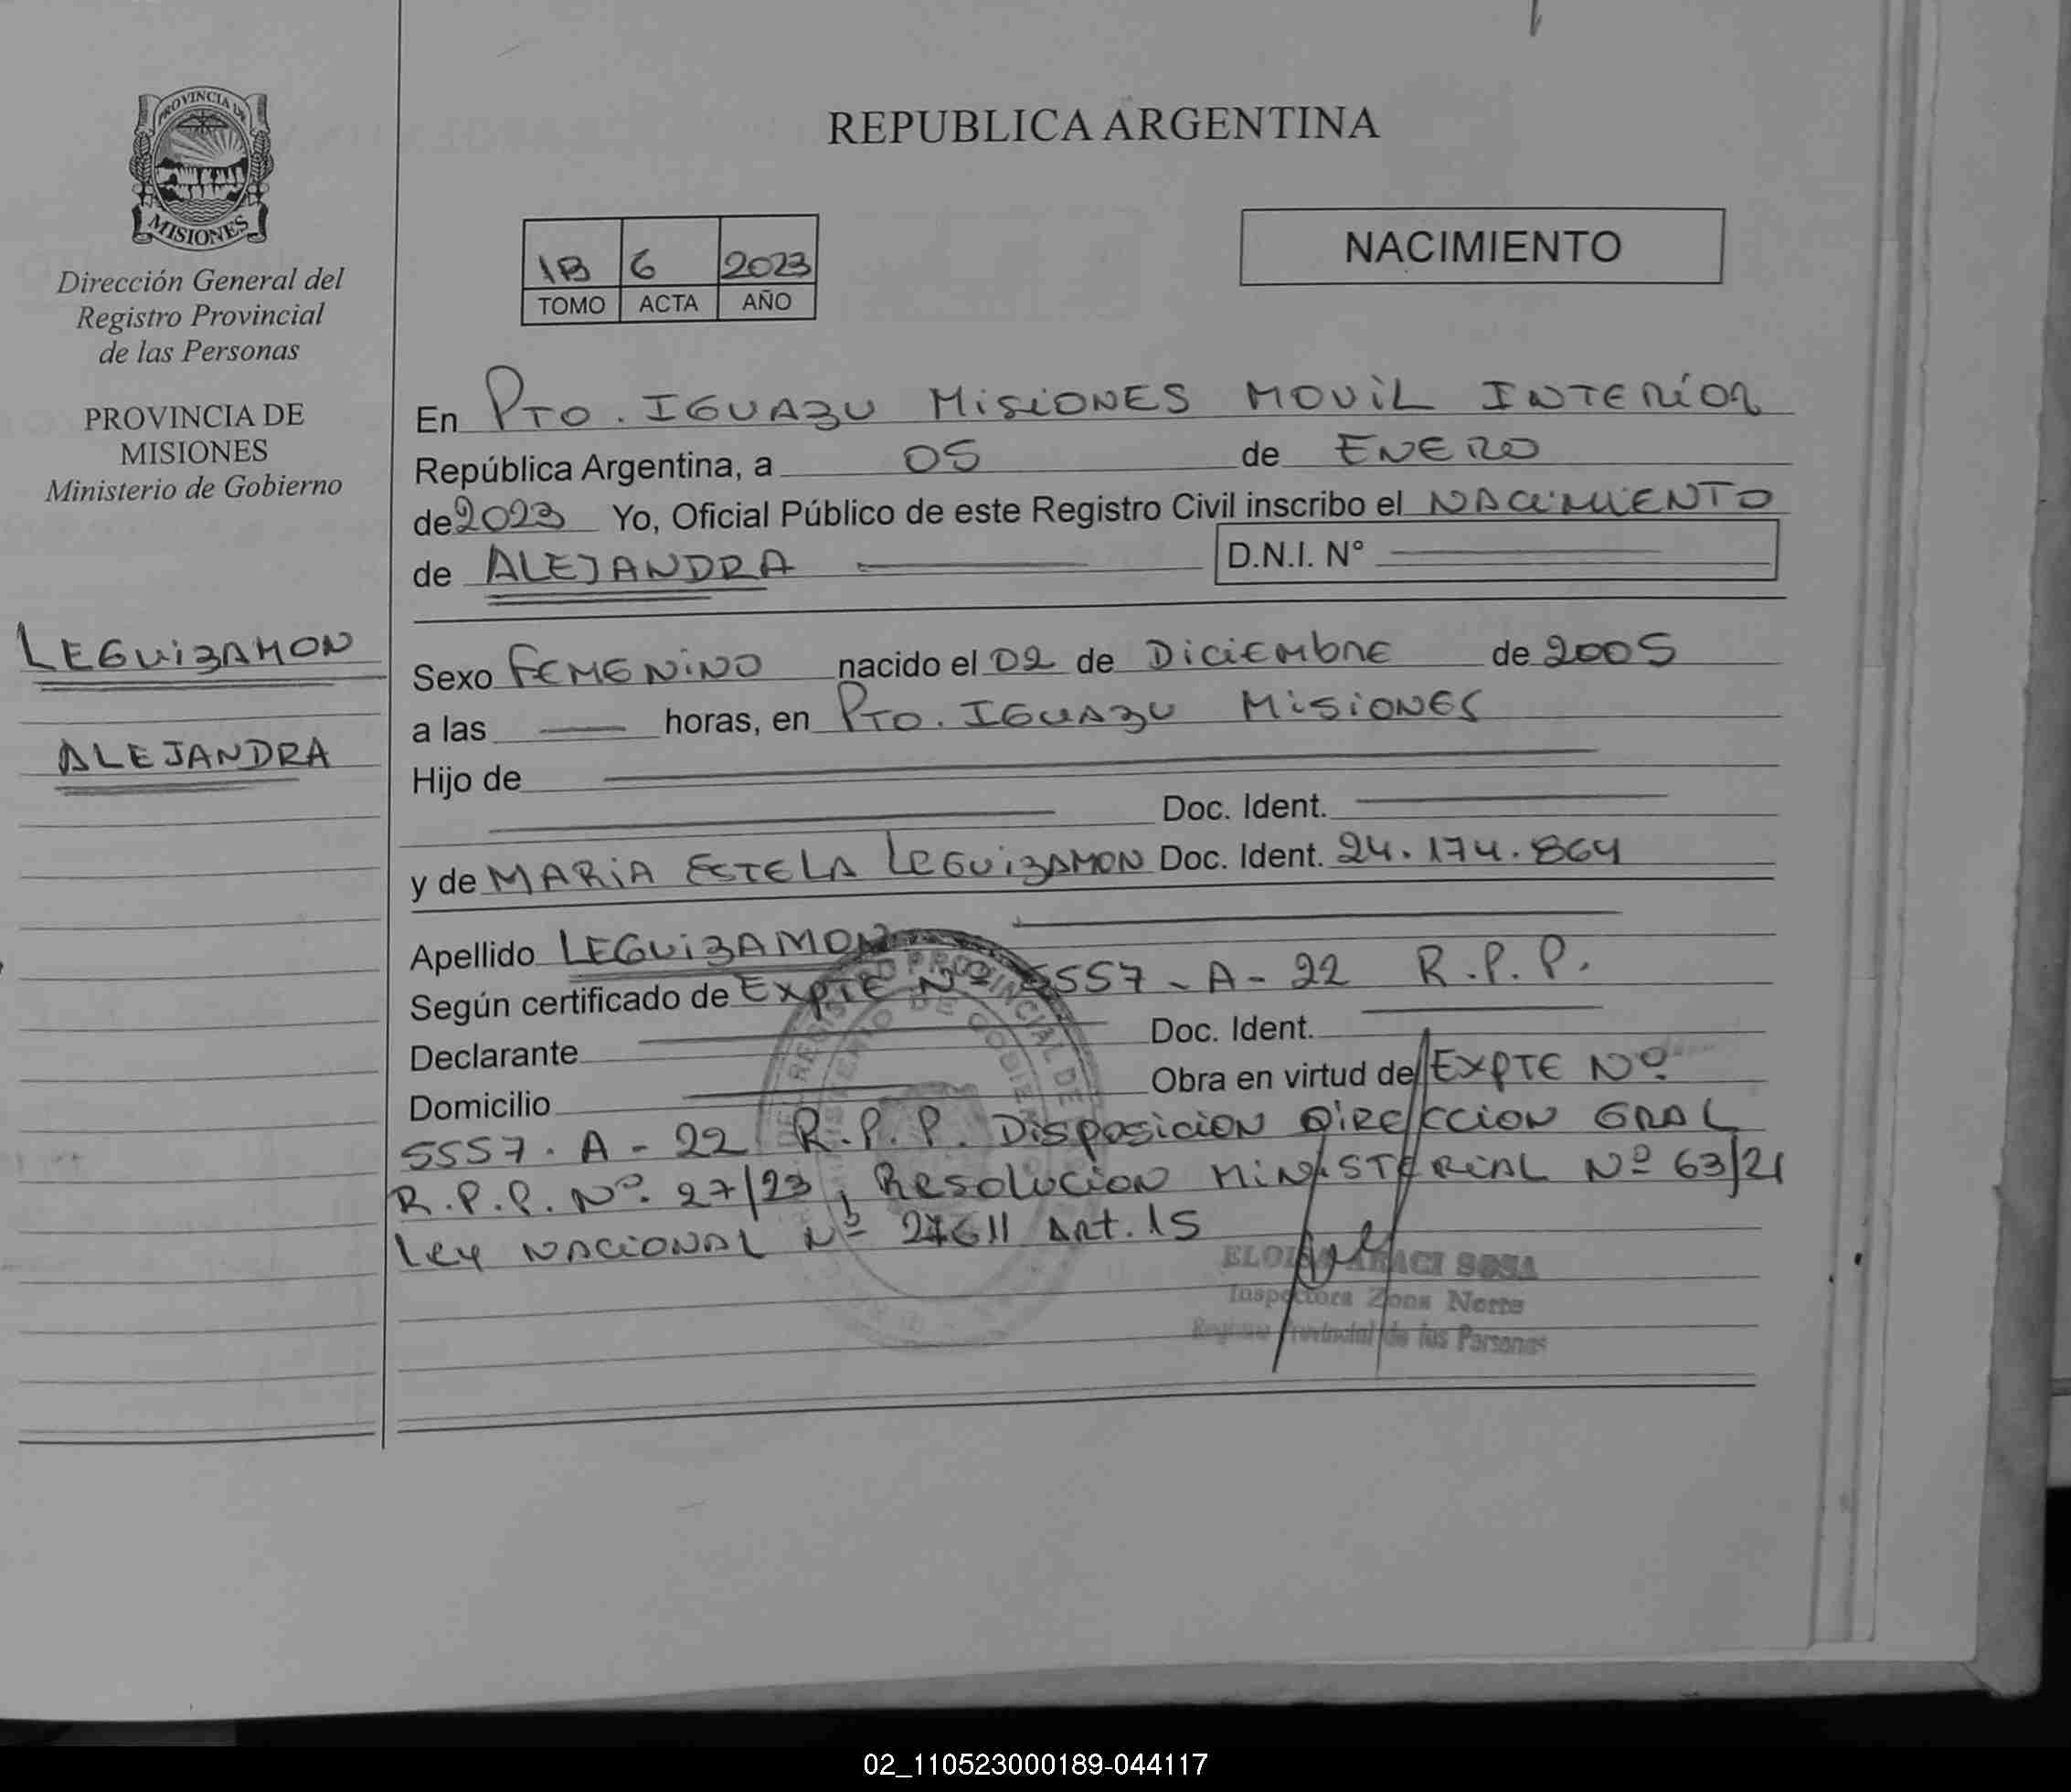 PROVINCIA DE
MISIONES
Dirección General del
Registro Provincial
de las Personas
PROVINCIA DE
MISIONES
Ministerio de Gobierno
LEGUIZAMON
ALEJANDRA
REPUBLICA ARGENTINA
1B 6 2023
TOMO ACTA AÑO
NACIMIENTO
En PTO. IGUAZU MISIONES MOVIL INTERIOR
República Argentina, a 05 de ENERO
de 2023 Yo, Oficial Público de este Registro Civil inscribo el NACIMIENTO
de ALEJANDRA D.N.I. N°
Sexo FEMENINO nacido el 02 de DICIEMBRE de 2005
a las horas, en PTO. IGUAZU MISIONES
Hijo de
Doc. Ident.
y de MARIA ESTELA LEGUIZAMON Doc. Ident. 24.174.864
Apellido LEGUIZAMON
Según certificado de EXPTE Nº 5557-A-22 R.P.P.
Declarante Doc. Ident.
Domicilio Obra en virtud de EXPTE Nº
5557.A-22 R.P.P. DISPOSICION DIRECCION GRAL
R.P.P. Nº. 27/23, RESOLUCION MINISTERIAL Nº 63/21
LEY NACIONAL Nº 27611 ART. 15
ARACI SOSA
Inspectora Zona Norte
Registro Provincial de las Personas
02_110523000189-044117